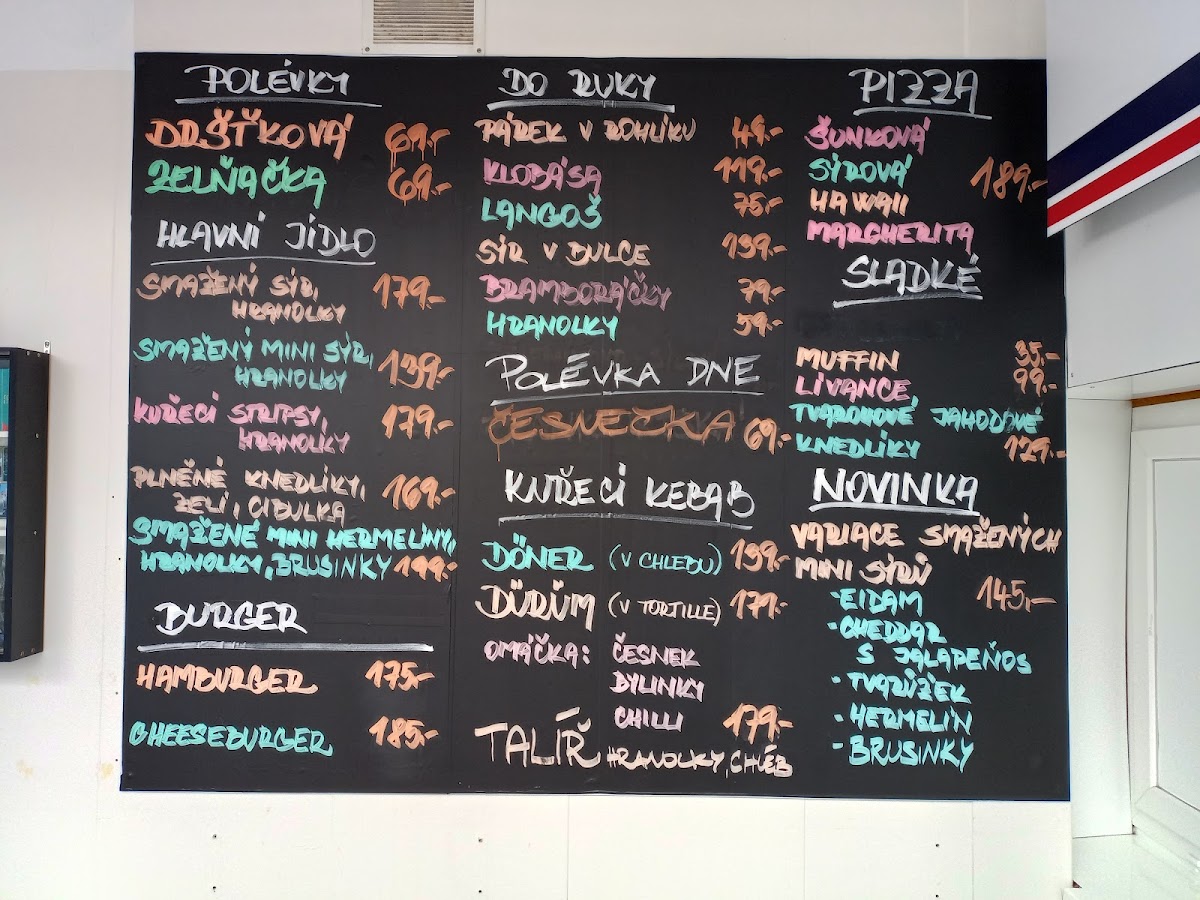 POLÉVKY
DRŠŤKOVÁ 69,-
ZELŇAČKA 69,-
HLAVNÍ JÍDLO
SMAŽENÝ SÝR, 179,-
HRANOLKY
SMAŽENÝ MINI SÝR, 139,-
HRANOLKY
KUŘECÍ STRIPSY, 179,-
HRANOLKY
PLNĚNÉ KNEDLÍKY, 169,-
ZELÍ, CIBULKA
SMAŽENÉ MINI HERMELÍNY,
HRANOLKY, BRUSINKY 199,-
BURGER
HAMBURGER 175,-
CHEESEBURGER 185,-
DO RUKY
PÁREK V ROHLÍKU 49,-
KLOBÁSA 119,-
LANGOŠ 75,-
SÝR V BULCE 139,-
BRAMBORÁČKY 79,-
HRANOLKY 59,-
POLÉVKA DNE
ČESNEČKA 69,-
KUŘECÍ KEBAB
DÖNER (V CHLEBU) 159,-
DÜRÜM (V TORTILLE) 179,-
OMÁČKA: ČESNEK
BYLINKY
CHILLI 179,-
TALÍŘ HRANOLKY, CHLÉB
PIZZA
ŠUNKOVÁ
SÝROVÁ 189,-
HAWAII
MARGHERITA
SLADKÉ
MUFFIN 35,-
LÍVANCE 99,-
TVAROHOVÉ JAHODOVÉ
KNEDLÍKY 129,-
NOVINKA
VARIACE SMAŽENÝCH
MINI SÝRŮ 145,-
- EIDAM
- CHEDDAR
S JALAPEŇOS
- TVARŮŽEK
- HERMELÍN
- BRUSINKY